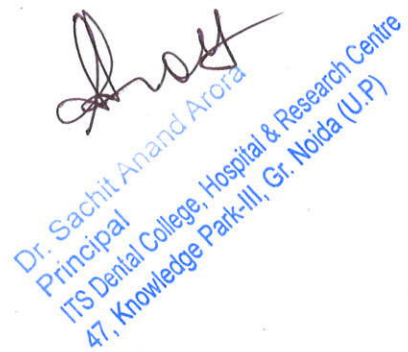 Dr. Sachit Anand Arora
Principal
ITS Dental College, Hospital & Research Centre
47, Knowledge Park-III, Gr. Noida (U.P)